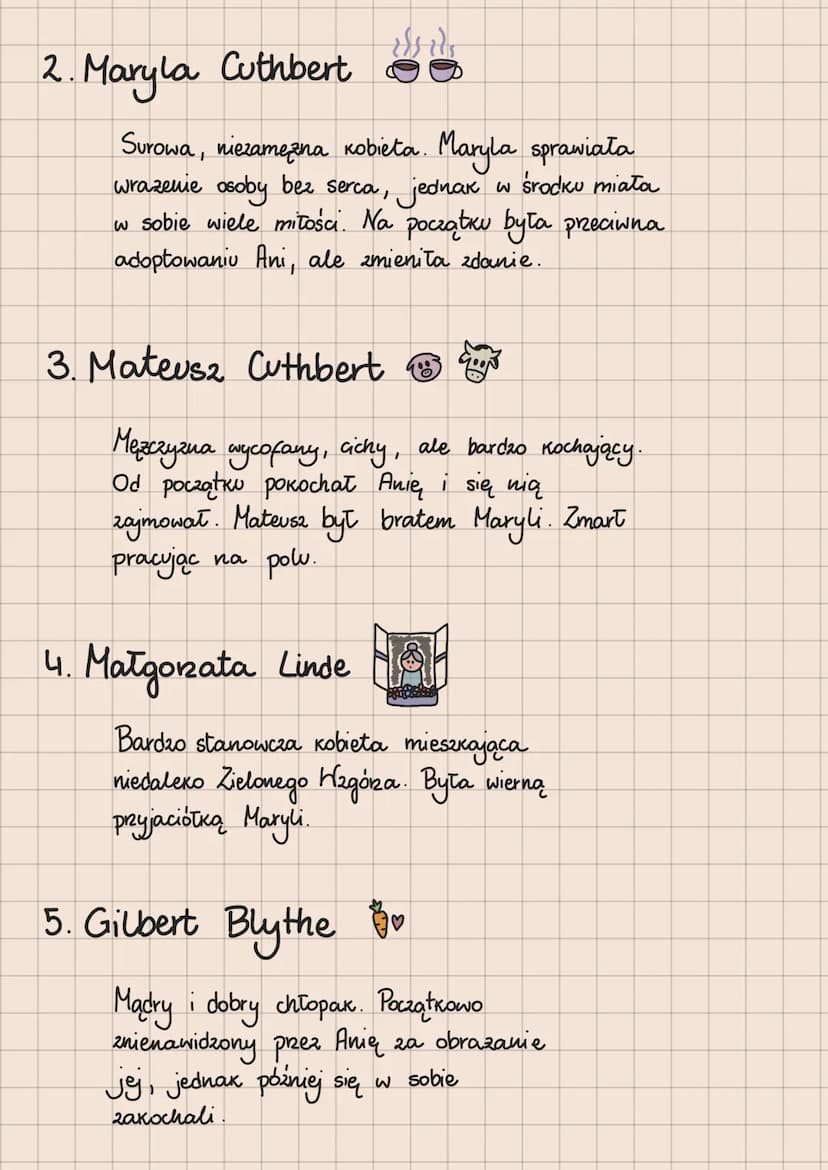 2. Maryla Cuthbert
Surowa, niezamężna kobieta. Maryla sprawiała
wrażenie osoby bez serca, jednak w środku miała
w sobie wiele miłości. Na początku była przeciwna
adoptowaniu Ani, ale zmieniła zdanie.
3. Mateusz Cuthbert
Mężczyzna wycofany, cichy, ale bardzo kochający.
Od początku pokochał Anię i się nią
zajmował. Mateusz był bratem Maryli. Zmarł
pracując na polu.
4. Małgorzata Linde
Bardzo stanowcza kobieta mieszkająca
niedaleko Zielonego Wzgórza. Była wierną
przyjaciółką Maryli.
5. Gilbert Blythe
Mądry i dobry chłopak. Początkowo
znienawidzony przez Anię za obrażanie
jej, jednak później się w sobie
zakochali.